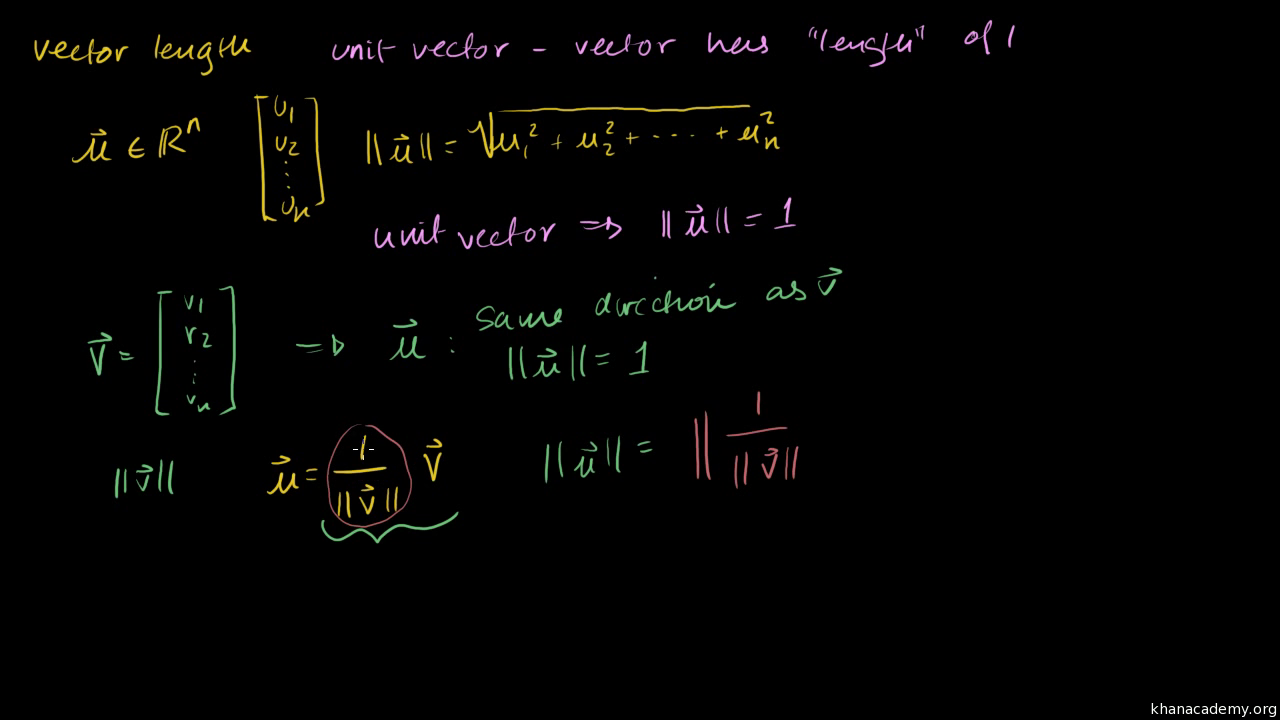 vector length unit vector - vector has "length" of 1
u⃗ ∈ ℝⁿ [u₁ u₂ ⋮ uₙ] ||u⃗|| = √(u₁² + u₂² + ⋯ + uₙ²)
unit vector ⇒ ||u⃗|| = 1
v⃗ = [v₁ v₂ ⋮ vₙ] ⇒ u⃗ : same direction as v⃗
||u⃗|| = 1
||v⃗|| u⃗ = 1/||v⃗|| v⃗ ||u⃗|| = || 1/||v⃗||
khanacademy.org